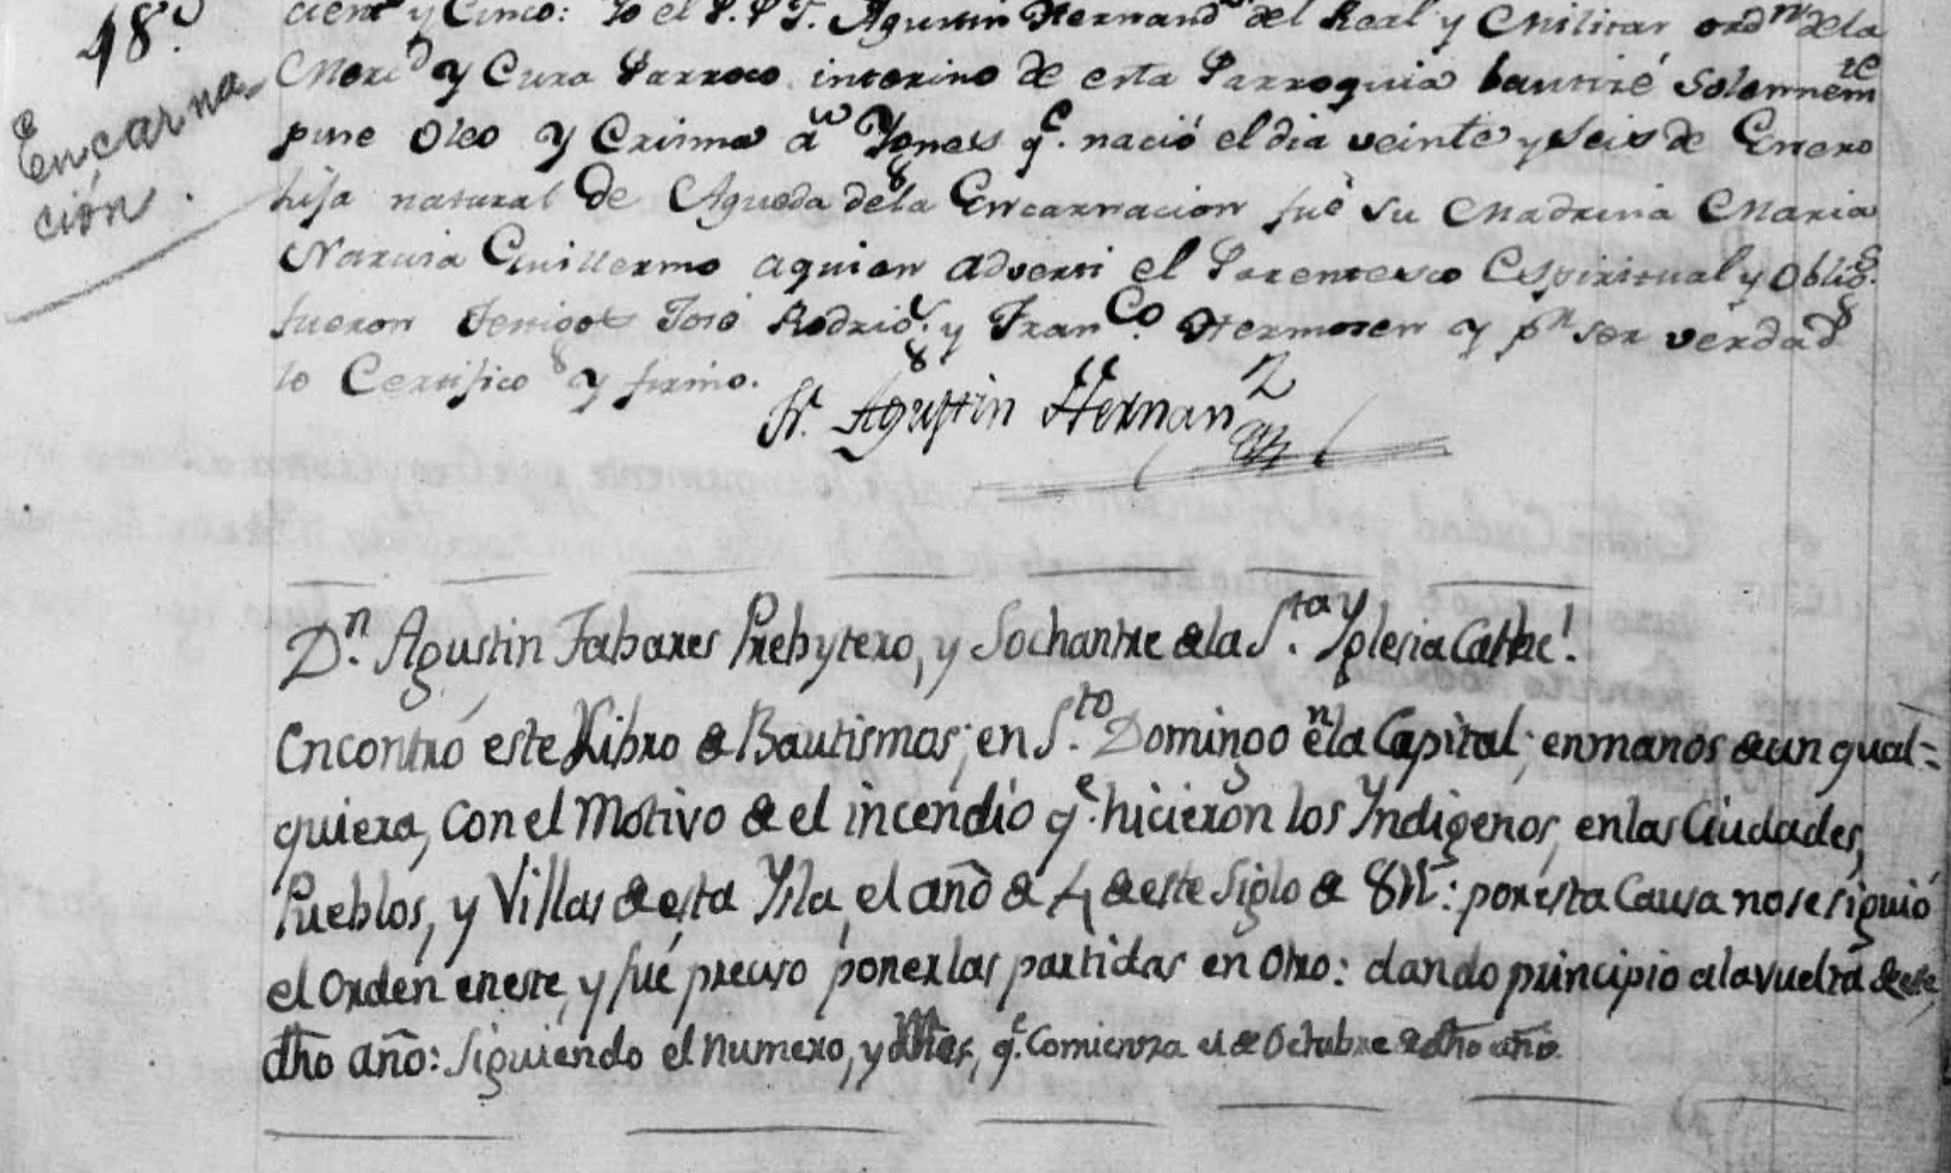 48.
Encarna-
ción.
cient.s y Cinco: Yo el P. P. F. Agustin Hernand.z del Real y Militar ord.n de la
Merc.d y Cura Parroco interino de esta Parroquia bautisé Solemnem.te
puse Oleo y Crisma á Ygnes q.e nació el dia veinte y seis de Enero
hija natural de Agueda de la Encarnacion fué su Madrina Maria
Narcisa Guillermo aquien adverti el Parentesco Espiritual y Oblig.s
fueron Testigos José Rodrig.s y Fran.co Hermosen y p.r ser verdad
lo Certifico y firmo.
Fr. Agustin Hernanz
D.n Agustin Tabares Prebytero, y Sochantre de la S.ta Yglesia Cathe.l
Encontró este Libro de Bautismos; en S.to Domingo en la Capital; en manos de un qual=
quiera, con el Motivo de el incendio q.e hicieron los Yndigenos, en las Ciudades,
Pueblos, y Villas de esta Ysla, el año de 4 de este Siglo de 8º: por esta Causa no se siguió
el Orden en este, y fué preciso poner las partidas en otro: dando principio a la vuelta de este
dho año: Siguiendo el numero, y q.e Comienza el de Octubre de dho año.